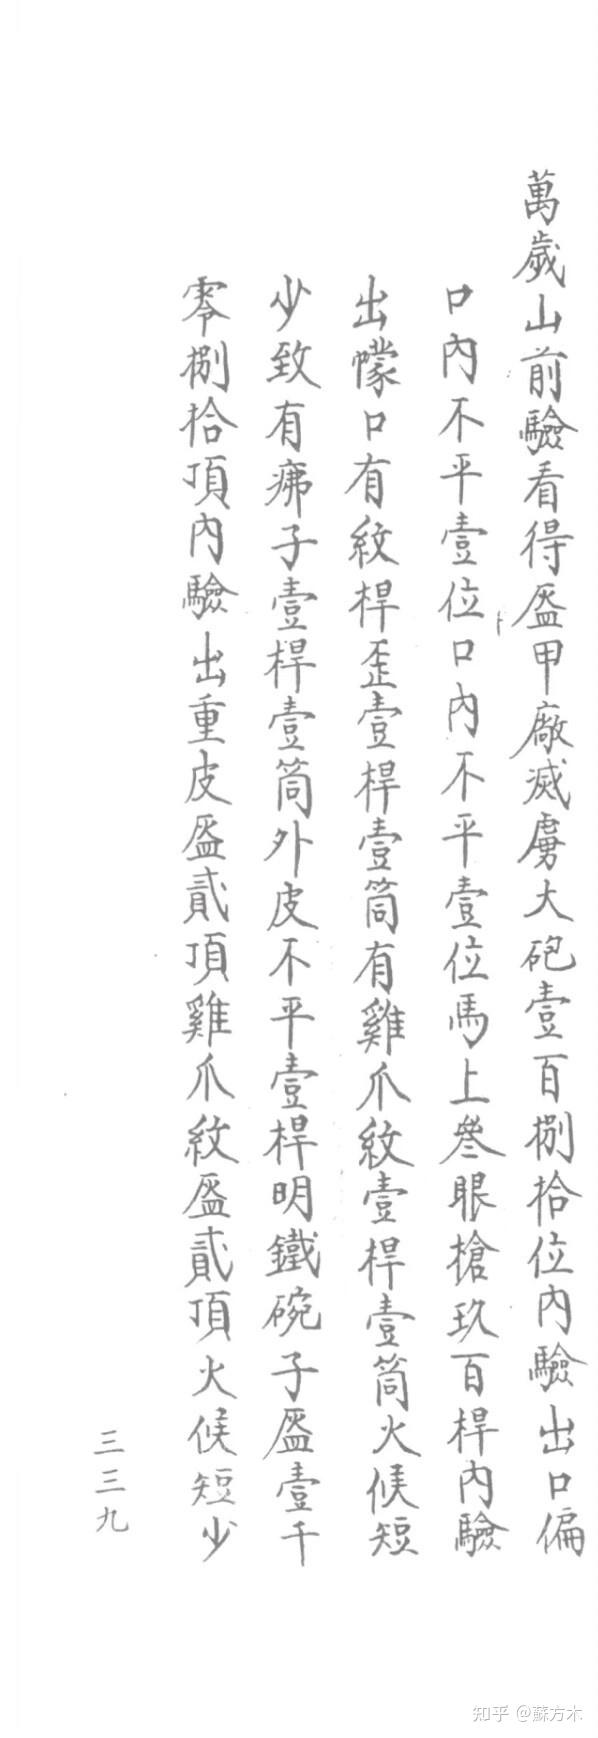 萬歲山前驗看得盔甲廠滅虜大砲壹百捌拾位內驗出口偏
口內不平壹位口內不平壹位馬上叄眼槍玖百桿內驗
出幪口有紋桿歪壹桿壹筒有雞爪紋壹桿壹筒火候短
少致有痨子壹桿壹筒外皮不平壹桿明鐵碗子盔壹千
零捌拾頂內驗出重皮盔貳頂雞爪紋盔貳頂火候短少
三三九
知乎 @蘇方木